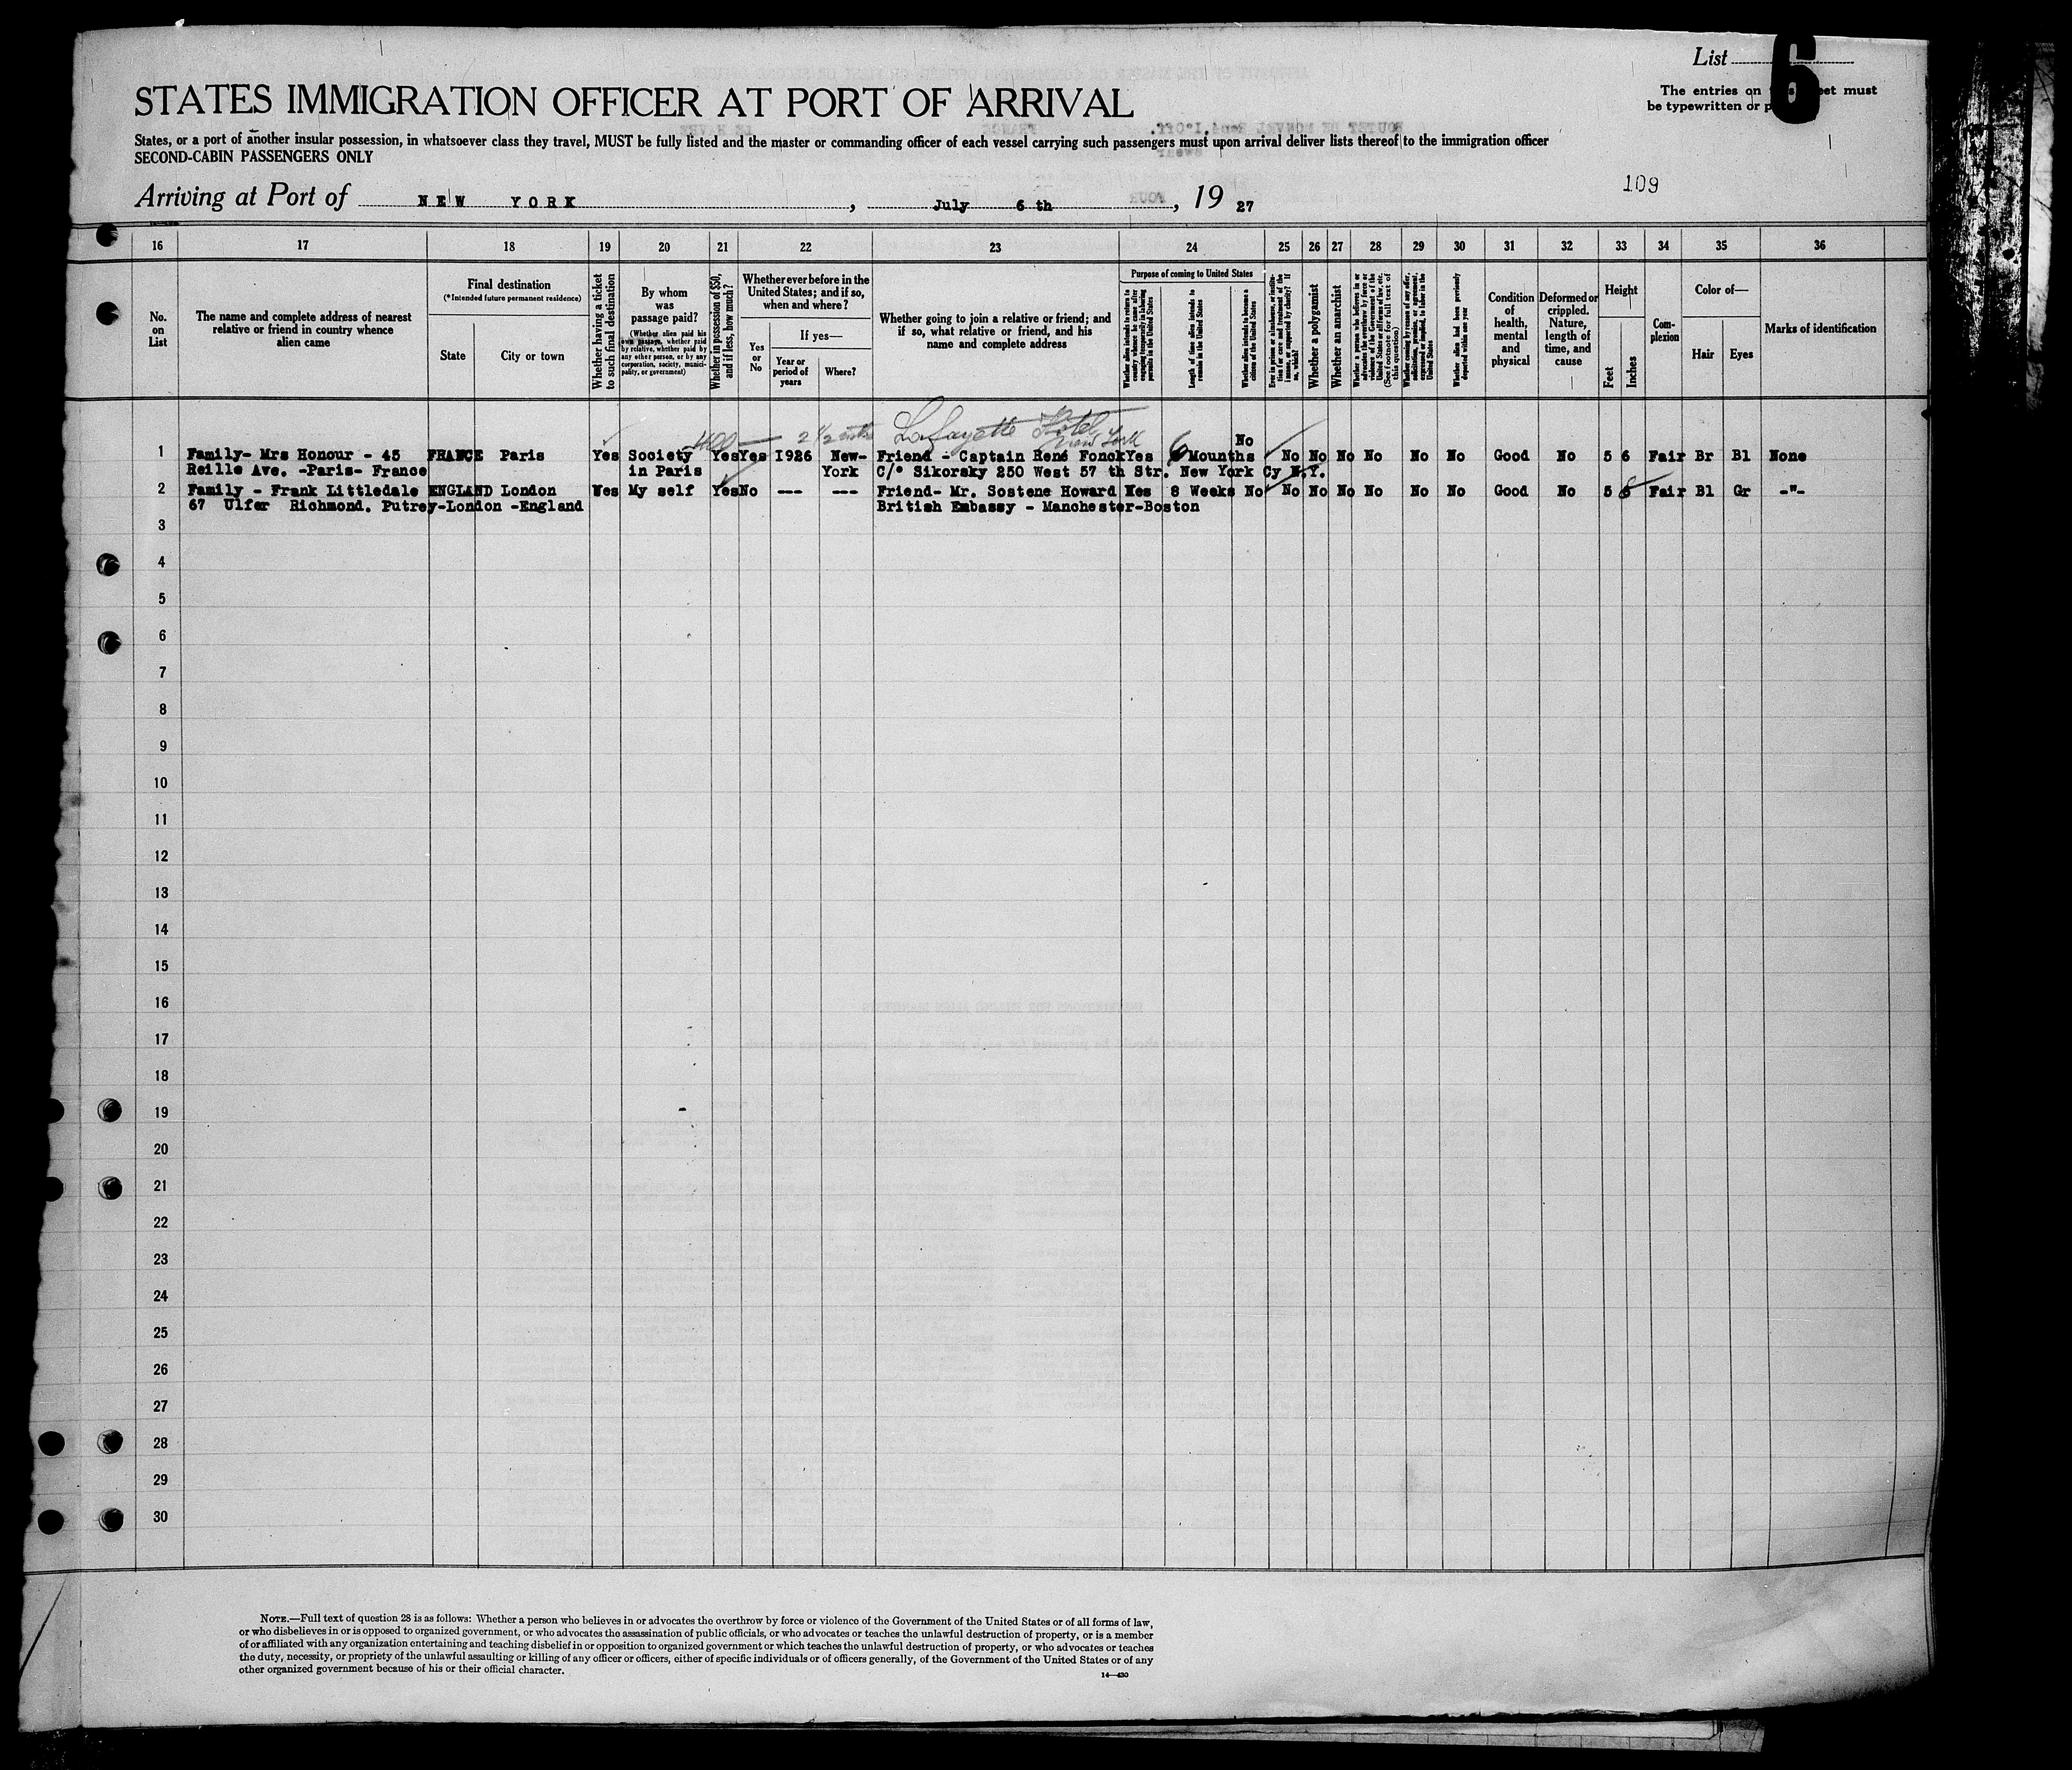 List 6
The entries on this sheet must
be typewritten or p
STATES IMMIGRATION OFFICER AT PORT OF ARRIVAL
States, or a port of another insular possession, in whatsoever class they travel, MUST be fully listed and the master or commanding officer of each vessel carrying such passengers must upon arrival deliver lists thereof to the immigration officer
SECOND-CABIN PASSENGERS ONLY
109
Arriving at Port of NEW YORK, July 6 th, 19 27
16 17 18 19 20 21 22 23 24 25 26 27 28 29 30 31 32 33 34 35 36
No.
on
List
The name and complete address of nearest
relative or friend in country whence
alien came
Final destination
(*Intended future permanent residence)
State
City or town
Whether having a ticket
to such final destination
By whom
was
passage paid?
(Whether alien paid his
own passage, whether paid
by relative, whether paid by
any other person, or by any
corporation, society, munici-
pality, or government)
Whether in possession of $50,
and if less, how much?
Whether ever before in the
United States; and if so,
when and where?
Yes
or
No
If yes—
Year or
period of
years
Where?
Whether going to join a relative or friend; and
if so, what relative or friend, and his
name and complete address
Purpose of coming to United States
Whether alien intends to return to
country whence he came after
engaging temporarily in laboring
pursuits in the United States
Length of time alien intends to
remain in the United States
Whether alien intends to become a
citizen of the United States
Ever in prison or almshouse, or institu-
tion for care and treatment of the
insane, or supported by charity? If
so, which?
Whether a polygamist
Whether an anarchist
Whether a person who believes in or
advocates the overthrow by force or
violence of the Government of the
United States or all forms of law, etc.
(See footnote for full text of
this question)
Whether coming by reason of any offer,
solicitation, promise, or agreement,
expressed or implied, to labor in the
United States
Whether alien had been previously
deported within one year
Condition
of
health,
mental
and
physical
Deformed or
crippled.
Nature,
length of
time, and
cause
Height
Feet
Inches
Com-
plexion
Color of—
Hair
Eyes
Marks of identification
400 — 2 1/2 mths Lafayette Hotel
New York
No
1 Family- Mrs Honour - 45 FRANCE Paris Yes Society Yes Yes I926 New- Friend - Captain René Fonck Yes 6 Mounths No No No No No No Good No 5 6 Fair Br Bl None
Reille Ave. -Paris- France in Paris York C/° Sikorsky 250 West 57 th Str. New York Cy N.Y.
2 Family - Frank Littledale ENGLAND London Yes My self Yes No --- --- Friend- Mr. Sostene Howard Yes 8 Weeks No No No No No No No Good No 5 8 Fair Bl Gr -"-
67 Ulfer Richmond. Putrey-London -England British Embassy - Manchester-Boston
3
4
5
6
7
8
9
10
11
12
13
14
15
16
17
18
19
20
21
22
23
24
25
26
27
28
29
30
NOTE.—Full text of question 28 is as follows: Whether a person who believes in or advocates the overthrow by force or violence of the Government of the United States or of all forms of law,
or who disbelieves in or is opposed to organized government, or who advocates the assassination of public officials, or who advocates or teaches the unlawful destruction of property, or is a member
of or affiliated with any organization entertaining and teaching disbelief in or opposition to organized government or which teaches the unlawful destruction of property, or who advocates or teaches
the duty, necessity, or propriety of the unlawful assaulting or killing of any officer or officers, either of specific individuals or of officers generally, of the Government of the United States or of any
other organized government because of his or their official character.
14—430